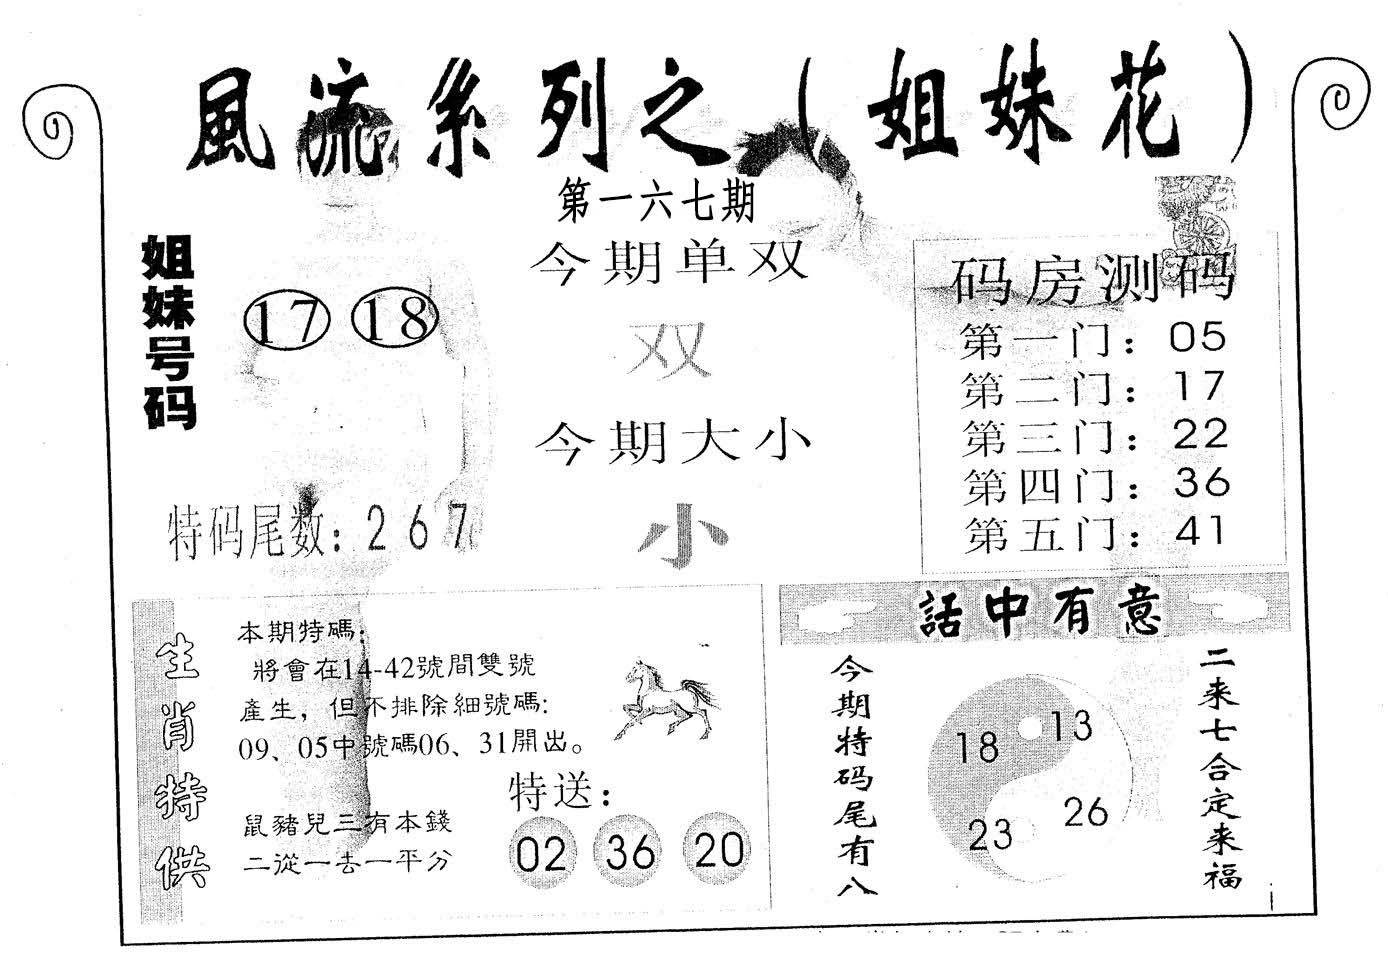 風流系列之（姐妹花）
第一六七期
姐妹号码
17 18
特码尾数：2 6 7
今期单双
双
今期大小
小
码房测码
第一门：05
第二门：17
第三门：22
第四门：36
第五门：41
生肖特供
本期特碼：
將會在14-42號間雙號
產生，但不排除細號碼：
09、05中號碼06、31開出。
鼠豬兒三有本錢
二從一去一平分
特送：
02 36 20
話中有意
今期特码尾有八
18 13
23 26
二来七合定来福